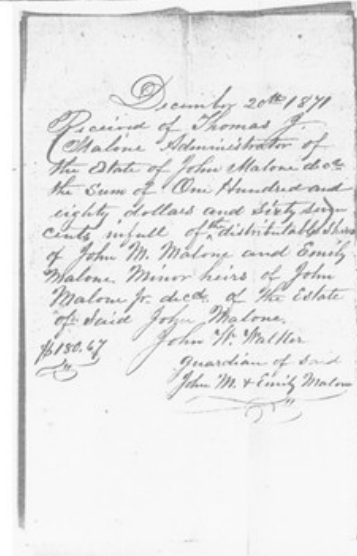 December 20th 1871
Received of Thomas J.
Malone Administrator of
the Estate of John Malone decd
the Sum of One Hundred and
eighty dollars and Sixty seven
cents in full of the distributable Share
of John M. Malone and Emily
Malone Minor heirs of John
Malone Jr. decd. of the Estate
of Said John Malone.
$180.67
John W. Walker
guardian of Said
John M. & Emily Malone